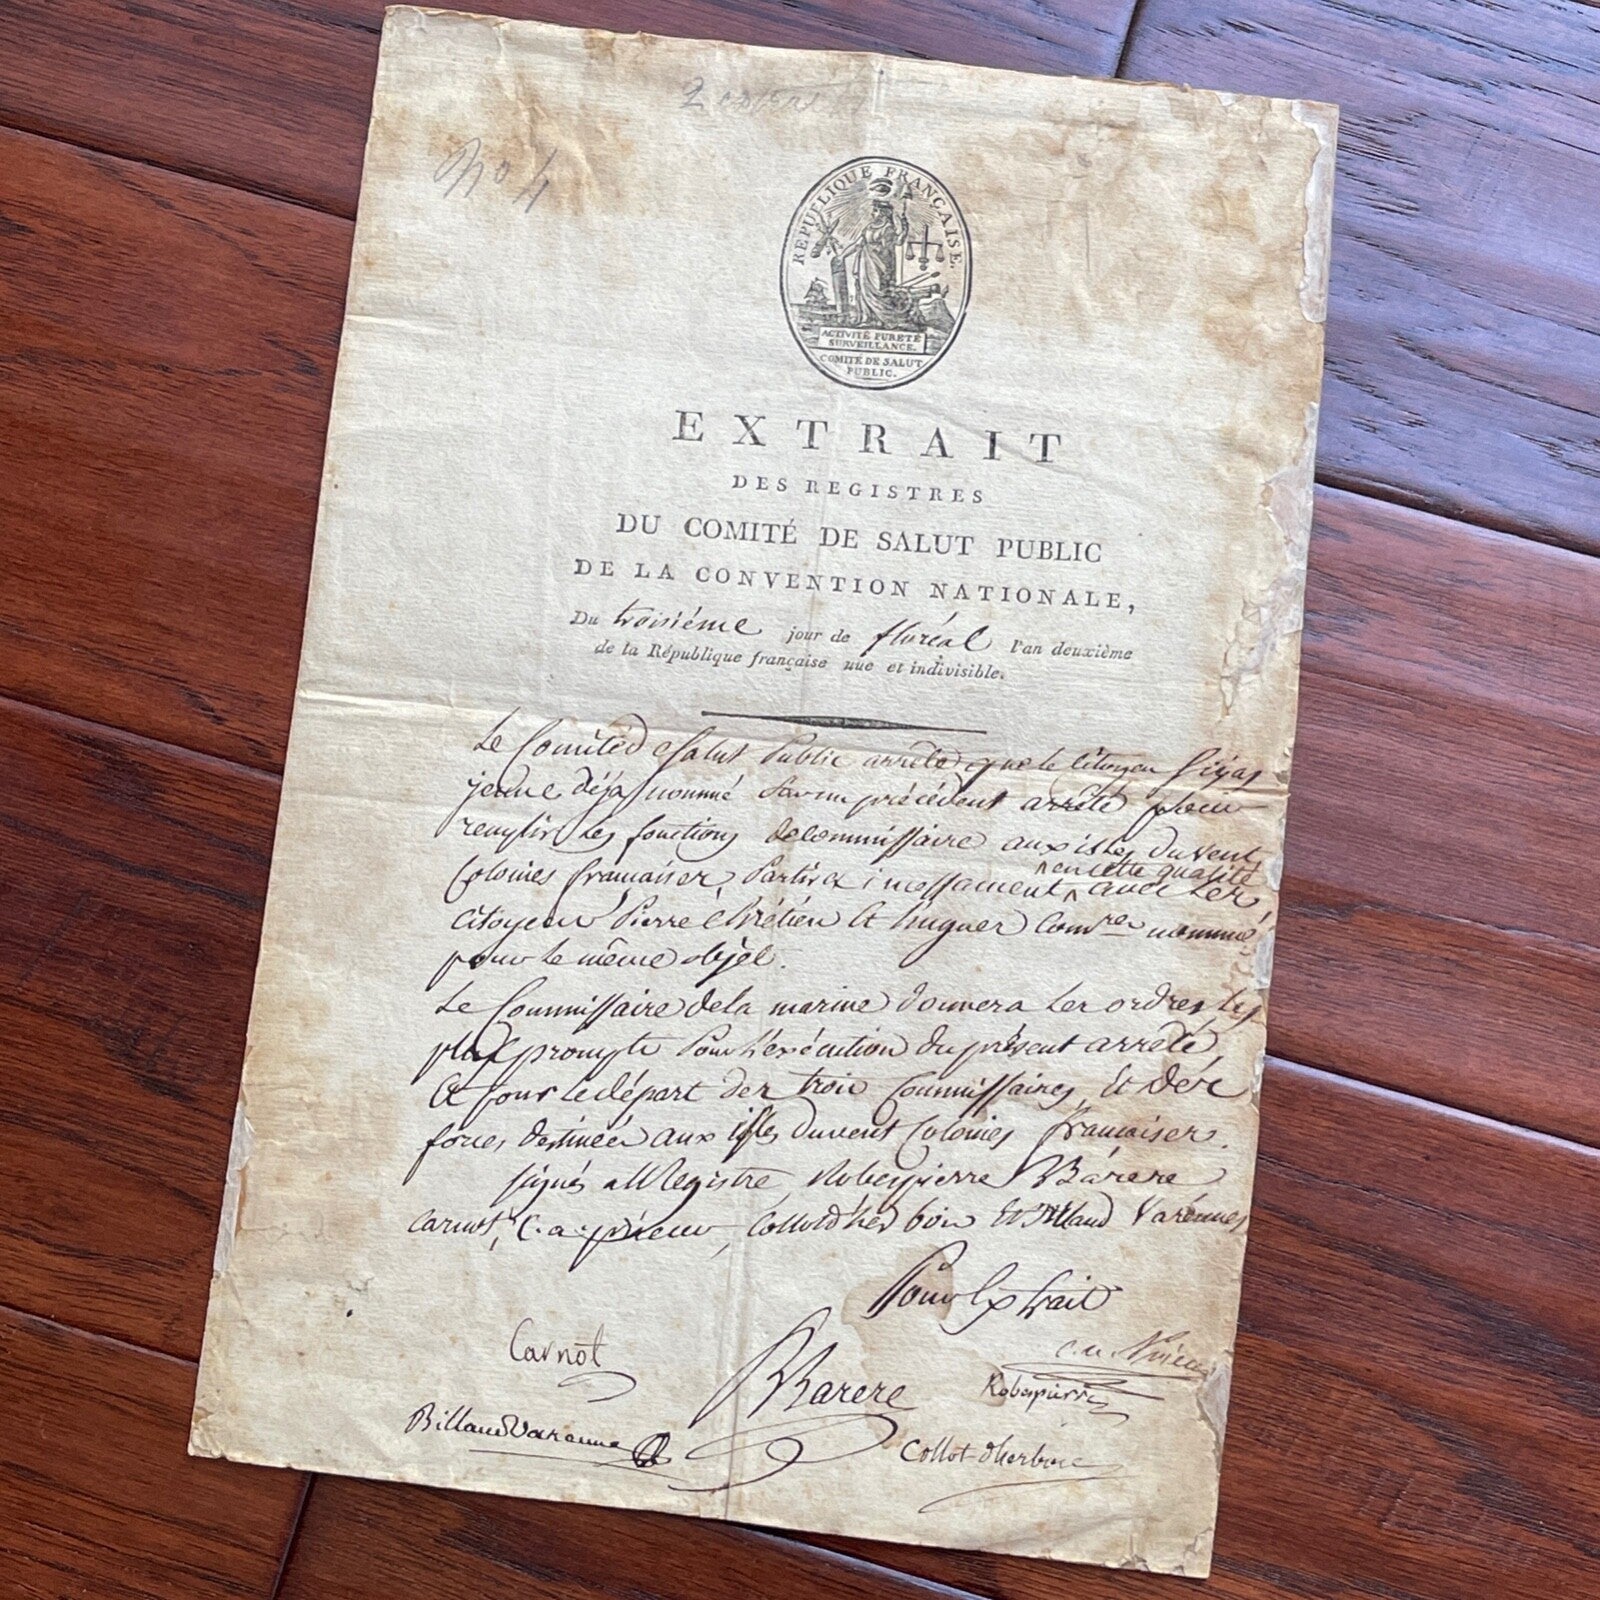 No 4
RÉPUBLIQUE FRANÇAISE.
ACTIVITÉ PURETÉ
SURVEILLANCE.
COMITÉ DE SALUT
PUBLIC.
EXTRAIT
DES REGISTRES
DU COMITÉ DE SALUT PUBLIC
DE LA CONVENTION NATIONALE,
Du troisiéme jour de floréal l'an deuxième
de la République française une et indivisible.
Le Comité de Salut Public arrête que le Citoyen
jeune déja nommé Par un précédent arrêté pour
remplir les fonctions de commissaire aux isles du vent,
en cette qualité
Colonies françaises, Partira incessament avec les
citoyens Pierre Chrétien et hugues Comres nommé
pour le même objet.
Le Commissaire de la marine donnera les ordres les
plus prompts Pour l'exécution du présent arrêté,
et pour le départ des trois Commissaires, et des
forces destinées aux isles du vent Colonies françaises.
signés au Registre, Robespierre, Barere
Carnot, C. a. prieur, Collot d'herbois et Billaud Varennes
Pour Extrait
Carnot
C. a. Prieur
Barere
Robespierre
Billaud Varenne
Collot d'herbois